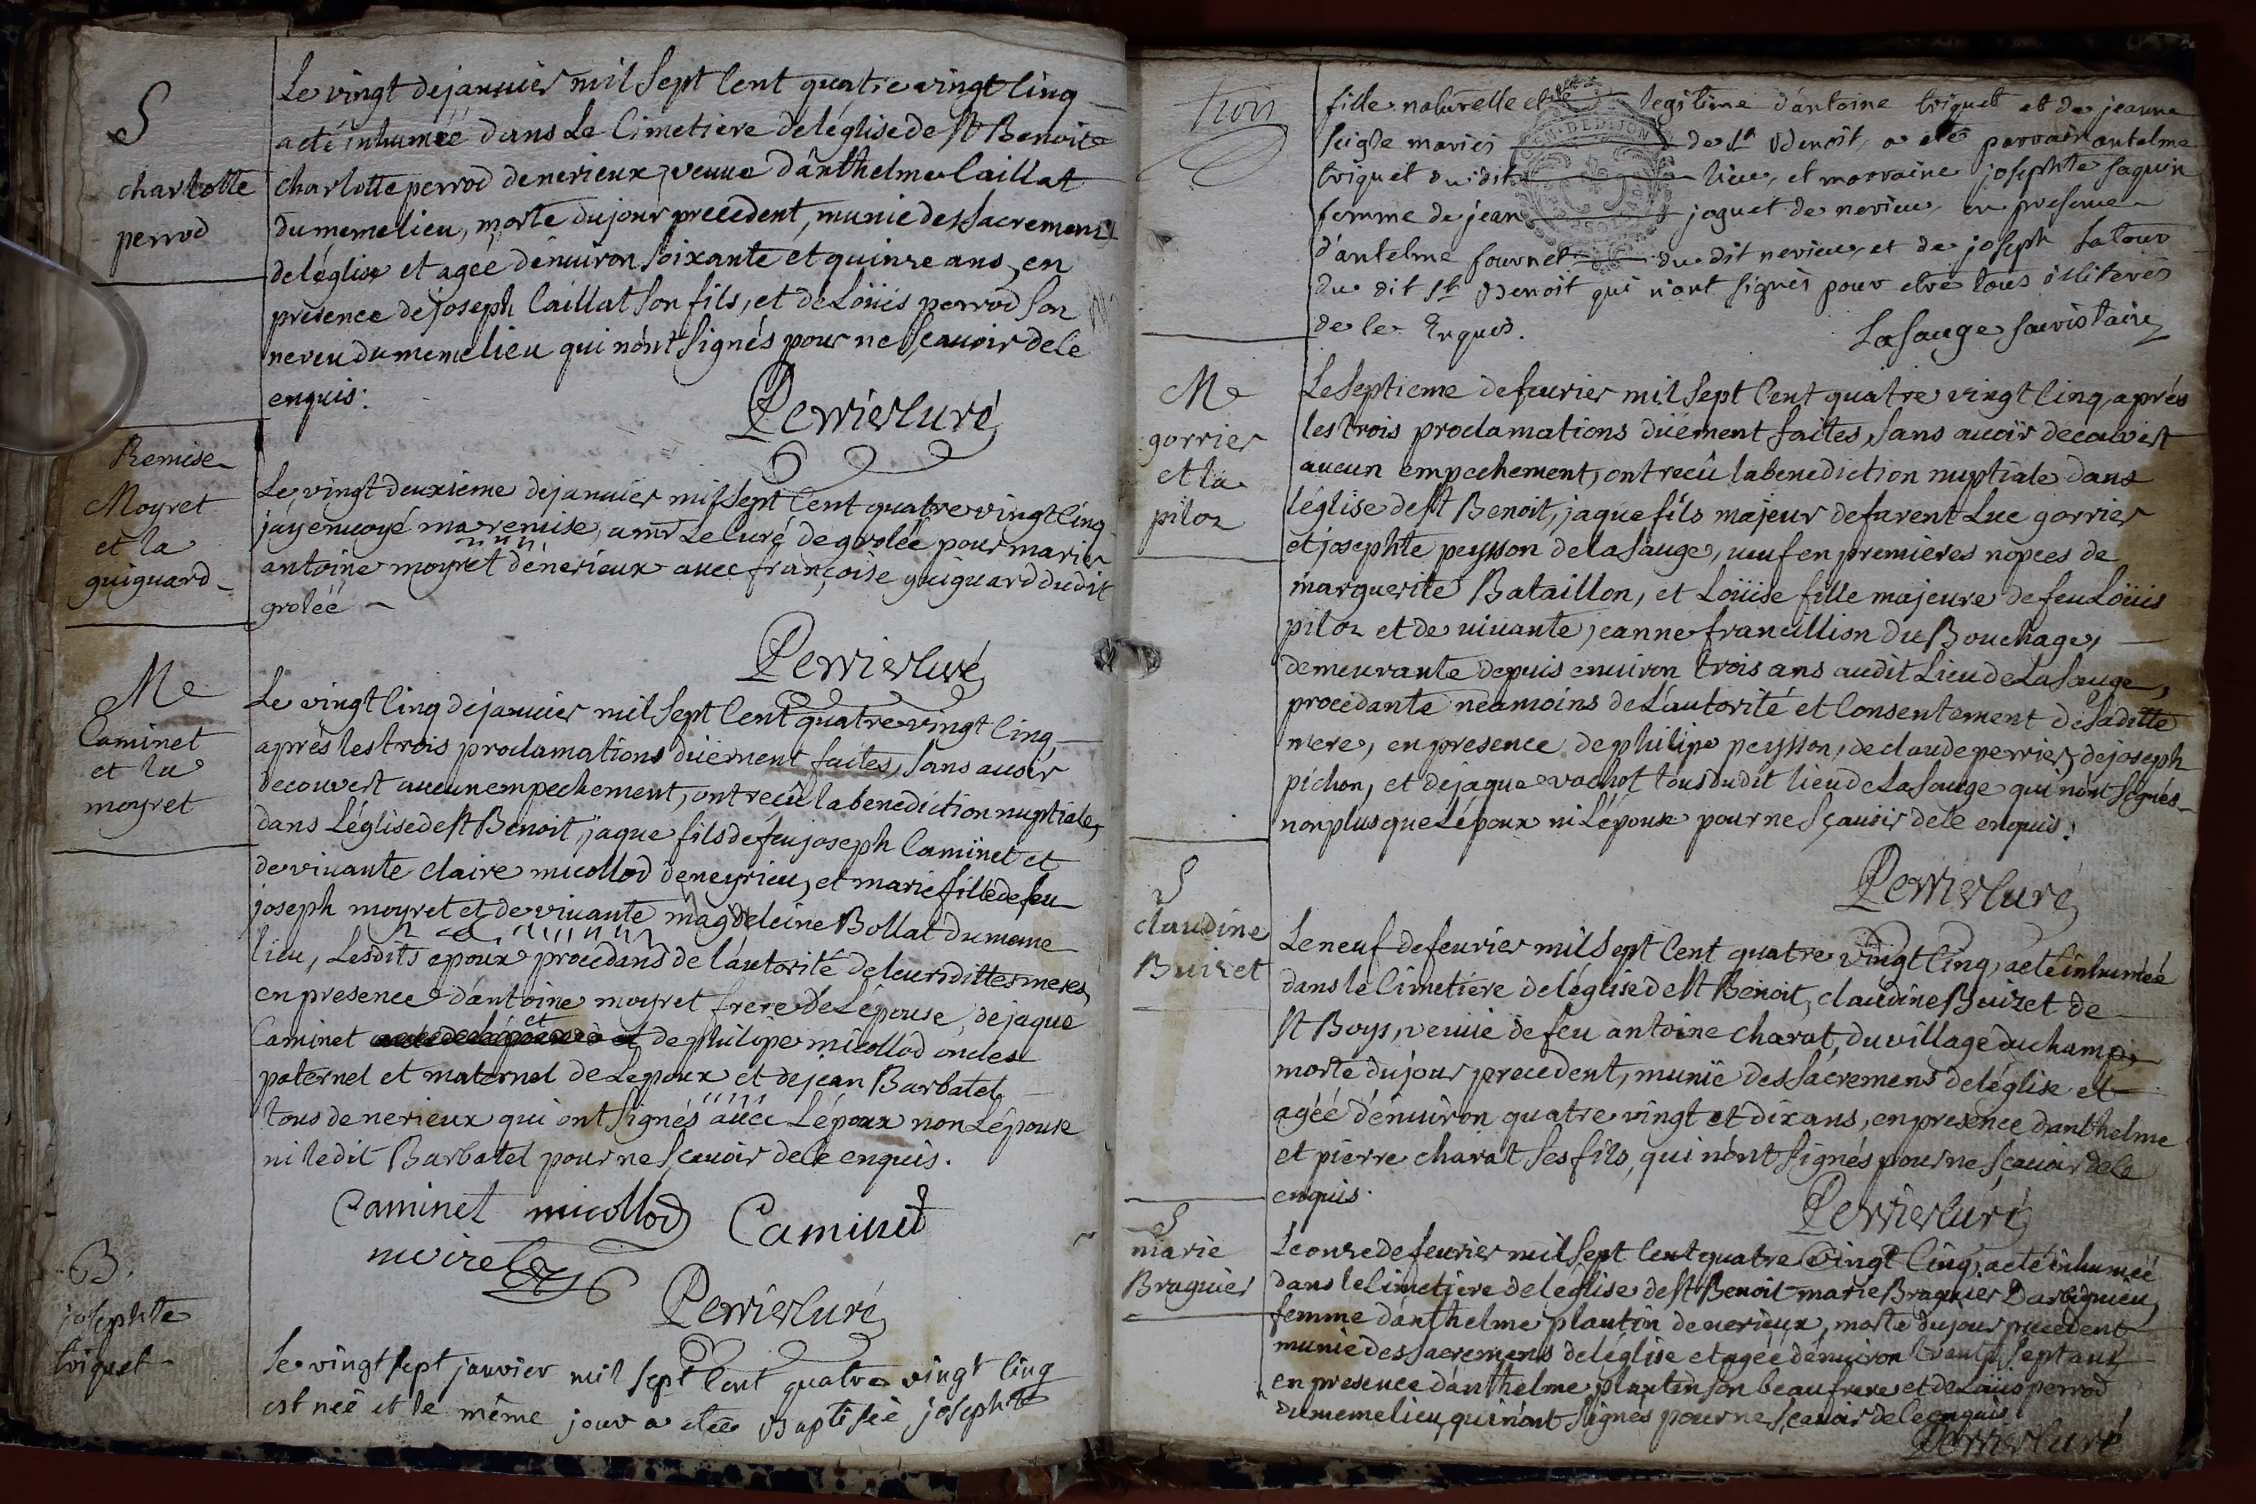 S
charlotte
perrod
Le vingt de janvier mil sept Cent quatre vingt Cinq
a eté inhumeé dans Le Cimetiere de léglise de St Benoit
charlotte perrod de nerieux, veuve d'ânthelme Caillat
du meme lieu, morte du jour precedent, munie des Sacremens
de léglise et ageé dénuiron soixante et quinze ans, en
presence de joseph Caillat son fils, et de Loüis perrod son
neveu du meme lieu qui nònt signés pour ne sçauoir de le
enquis.
Perrier Curé
Remise
Moyret
et la
guiguard
Le vingt deuxieme de januier mil sept Cent quatre vingt Cinq
j'áy enuoyé ma remise, a mr Le Curé de groleé pour marier
antoine moyret dénerieux auec françoise guiguard du dit
groleé
Perrier Curé
Me
Caminet
et la
moyret
Le vingt Cinq de januier mil sept Cent quatre vingt Cinq,
aprés les trois proclamations düement faites, sans auoir
decouvert aucun empechement, ont recû la benediction nuptiale,
dans Léglise de st Benoit, jaque fils de feu joseph Caminet et
de viuante claire micollod de neyrieu, et marie fille de feu
joseph moyret et de viuante magdeleine Bollat du meme
lieu, Lesdits epoux procedans de láutorité de leursdittes meres,
en presence d'antoine moyret frere de Lépouse, de jaque
Caminet et de philipe micollod oncles
paternel et maternel de Lepoux et de jean Barbatel
tous de nerieux qui ont signés auec Lépoux non Lépouse
ni ledit Barbatel pour ne sçauoir de le enquis.
Caminet micollod Caminet
moiret
Perrier Curé
B.
josephte
triquet
Le vingt sept janvier mil sept Cent quatre vingt Cinq
est neé et le même jour a eteé Baptiseé josephte
trois
fille naturelle et legitime d'antoine triquet et de jeanne
seigle mariés de St Benoit, a eté parrain antelme
triquet du dit lieu, et marraine josephte saquin
femme de jean joguet de nerieu, en presence
d'antelme fournet du dit nerieu, et de joseph Latour
du dit St Benoit qui n'ont signés pour etre tous illiterés
de le Enquis.
Lasauge sacristain
Me
gorrier
et la
piloz
Le septieme de feurier mil sept Cent quatre vingt Cinq, aprés
les trois proclamations düement faites, sans auoir decouvert
aucun empechement, ont recû la benediction nuptiale dans
léglise de st Benoit, jaque fils majeur de furent Luc gorrier
et josephte peysson de la sauge, veuf en premieres nopces de
marguerite Bataillon, et Loüise fille majeure de feu Loüis
piloz et de viuante jeanne francillion du Bouchage,
demeurante depuis enuiron trois ans audit Lieu de La sauge,
procedante néamoins de Láutorité et Consentement de sa ditte
mere, en presence de philipe peysson, de claude perrier, de joseph
pichon, et de jaque vachot tous dudit lieu de La sauge qui nònt signés
non plus que Lépoux ni Lépouse pour ne sçauoir de le enquis.
Perrier Curé
S
claudine
Buizet
Le neuf de feurier mil sept Cent quatre vingt Cinq, a eté inhumeé
dans le Cimetiere de léglise de st Benoit, claudine Buizet de
St Boys, veuue de feu antoine charat, du village du champ,
morte du jour precedent, munie des sacremens de léglise et
ageé dénuiron quatre vingt et dix ans, en presence danthelme
et pierre charat ses fils, qui nònt signés pour ne sçauoir de le
enquis.
Perrier Curé
S
marie
Braguier
Le onze de feurier mil sept Cent quatre vingt Cinq, a eté inhumeé
dans le Cimetiere de léglise de st Benoit marie Braguier Darbignieu,
femme dánthelme plantin de nerieux, morte du jour precedent
munie des sacremens de léglise et ageé dénuiron trante sept ans
en presence dánthelme plantin son beaufrere et de Loüis perrod
du meme lieu, qui nònt signés pour ne sçauoir de le enquis.
Perrier Curé